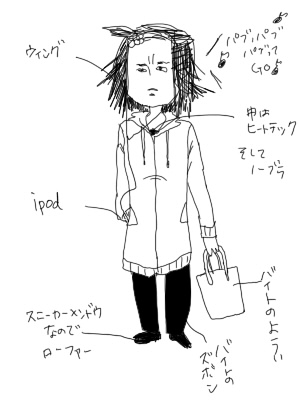 ウィング
パブリパブ
パブって
GO♪
中は
ヒートテック
そして
ノーブラ
ipod
スニーカーメンドウ
なので
ローファー
バイトの
ズボン
バイトのようい